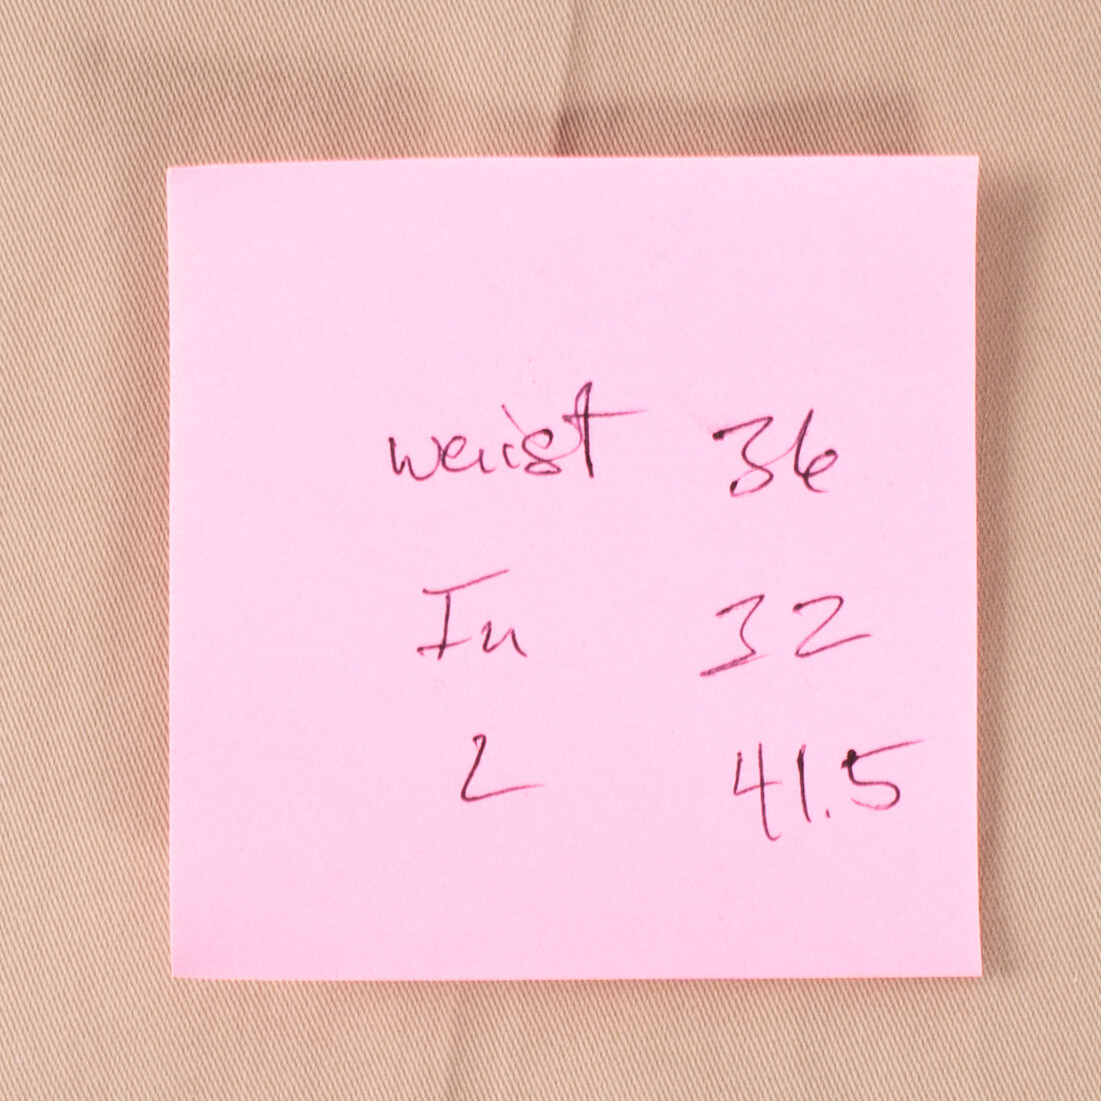 waist 36
In 32
L 41.5